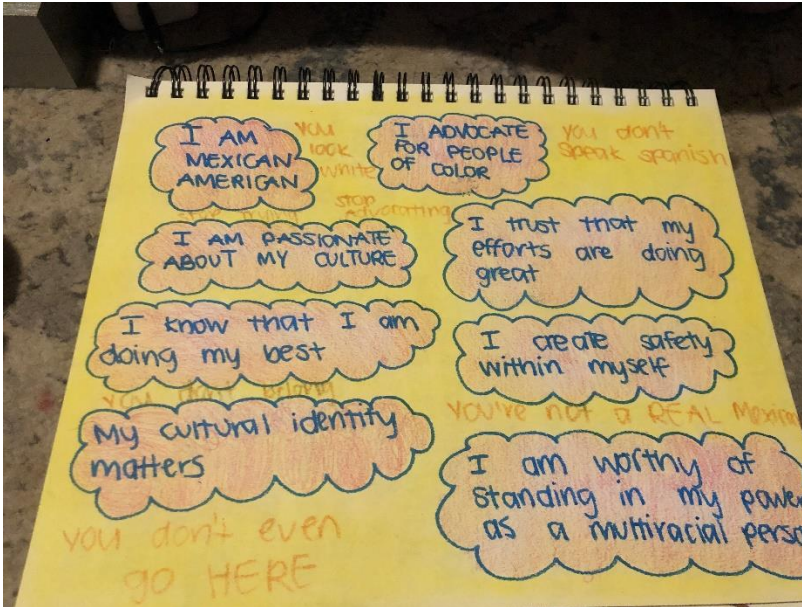 I AM
MEXICAN
AMERICAN
you
look
white
I ADVOCATE
FOR PEOPLE
OF COLOR
you don't
speak spanish
stop trying
stop
advocating
I AM PASSIONATE
ABOUT MY CULTURE
I trust that my
efforts are doing
great
I know that I am
doing my best
I create safety
within myself
you don't belong
you're not a REAL
My cultural identity
matters
I am worthy of
standing in my
as a multiracial
you don't even
go HERE